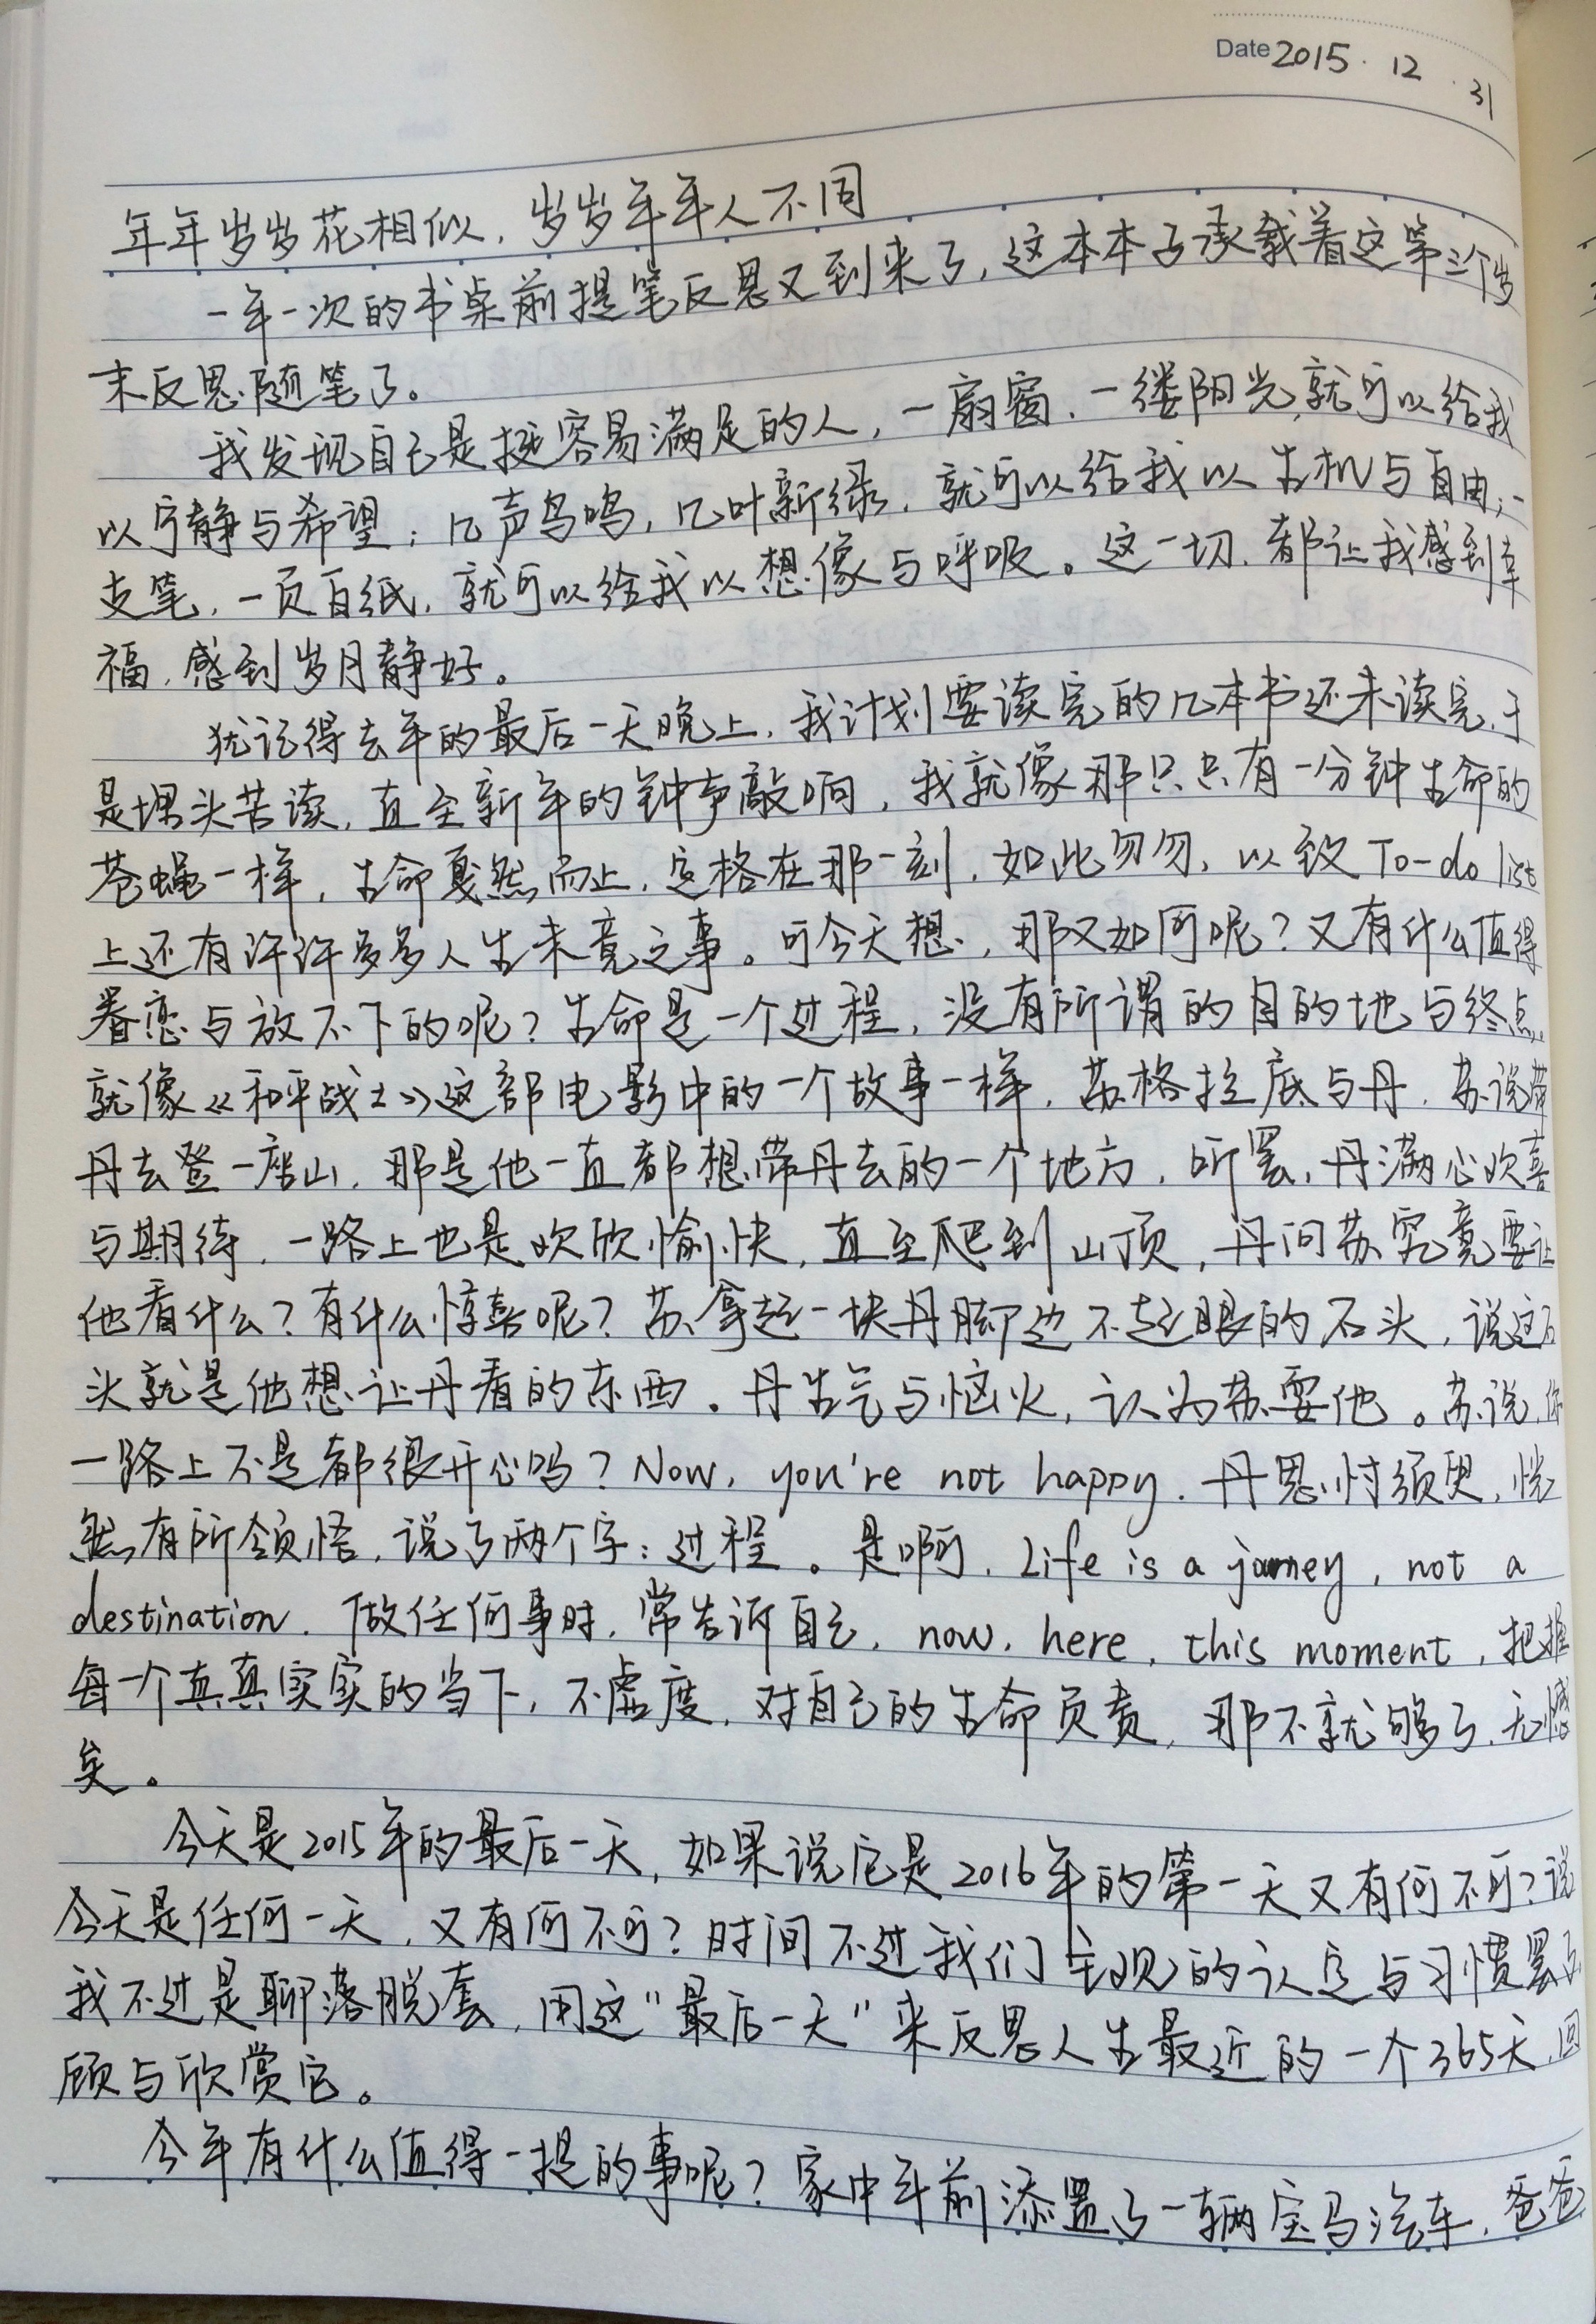 Date 2015.12.31
年年岁岁花相似，岁岁年年人不同
一年一次的书桌前提笔反思又到来了，这本本子承载着这第三个岁
末反思随笔了。
我发现自己是挺容易满足的人，一扇窗，一缕阳光，就可以给我
以宁静与希望；几声鸟鸣，几叶新绿，就可以给我以生机与自由；一
支笔，一页白纸，就可以给我以想像与呼吸。这一切，都让我感到幸
福，感到岁月静好。
犹记得去年的最后一天晚上，我计划要读完的几本书还未读完，于
是埋头苦读，直至新年的钟声敲响，我就像那只只有一分钟生命的
苍蝇一样，生命戛然而止，定格在那一刻，如此匆匆，以致To-do list
上还有许许多多人生未竟之事。可今天想，那又如何呢？又有什么值得
眷恋与放不下的呢？生命是一个过程，没有所谓的目的地与终点，
就像《和平战士》这部电影中的一个故事一样，苏格拉底与丹，苏说带
丹去登一座山，那是他一直都想带丹去的一个地方，听罢，丹满心欢喜
与期待，一路上也是欢欣愉快，直至爬到山顶，丹问苏究竟要让
他看什么？有什么惊喜呢？苏拿起一块丹脚边不起眼的石头，说这石
头就是他想让丹看的东西。丹生气与恼火，认为苏耍他。苏说，你
一路上不是都很开心吗？Now, you're not happy. 丹思忖须臾，恍
然有所领悟，说了两个字：过程。是啊，Life is a jorney, not a
destination. 做任何事时，常告诉自己，now, here, this moment，把握
每一个真真实实的当下，不虚度，对自己的生命负责，那不就够了，无憾
矣。
今天是2015年的最后一天，如果说它是2016年的第一天又有何不可？说
今天是任何一天，又有何不可？时间不过我们主观的认定与习惯罢了，
我不过是聊落脱套，用这"最后一天"来反思人生最近的一个365天，回
顾与欣赏它。
今年有什么值得一提的事呢？家中年前添置了一辆宝马汽车，爸爸